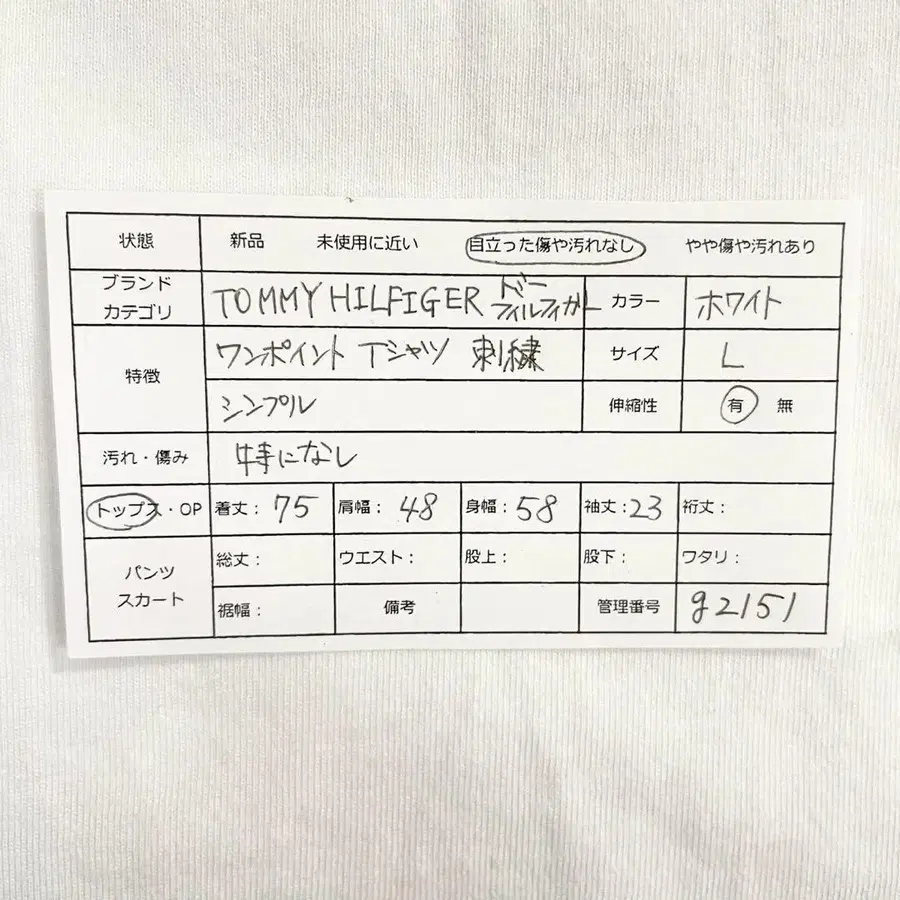 状態 新品 未使用に近い 目立った傷や汚れなし やや傷や汚れあり
ブランド
カテゴリ
TOMMY HILFIGER
カラー ホワイト
特徴
ワンポイント Tシャツ 刺繍
サイズ L
シンプル
伸縮性 有 無
汚れ・傷み 特になし
トップス・OP 着丈: 75 肩幅: 48 身幅: 58 袖丈: 23 裄丈:
パンツ
スカート
総丈: ウエスト: 股上: 股下: ワタリ:
裾幅: 備考 管理番号 g2151